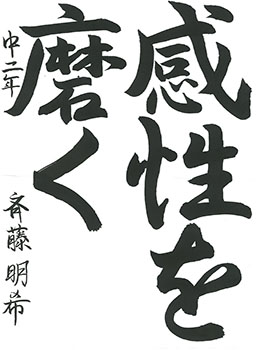 感性を
磨く
中二年
斉藤明希